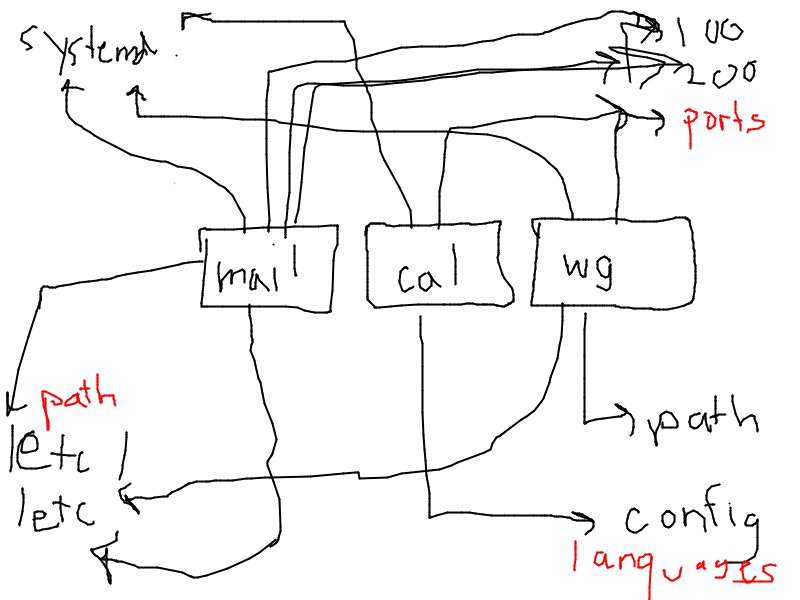 systemd
100
200
ports
mail
cal
wg
path
/etc/
/etc
path
config
languages